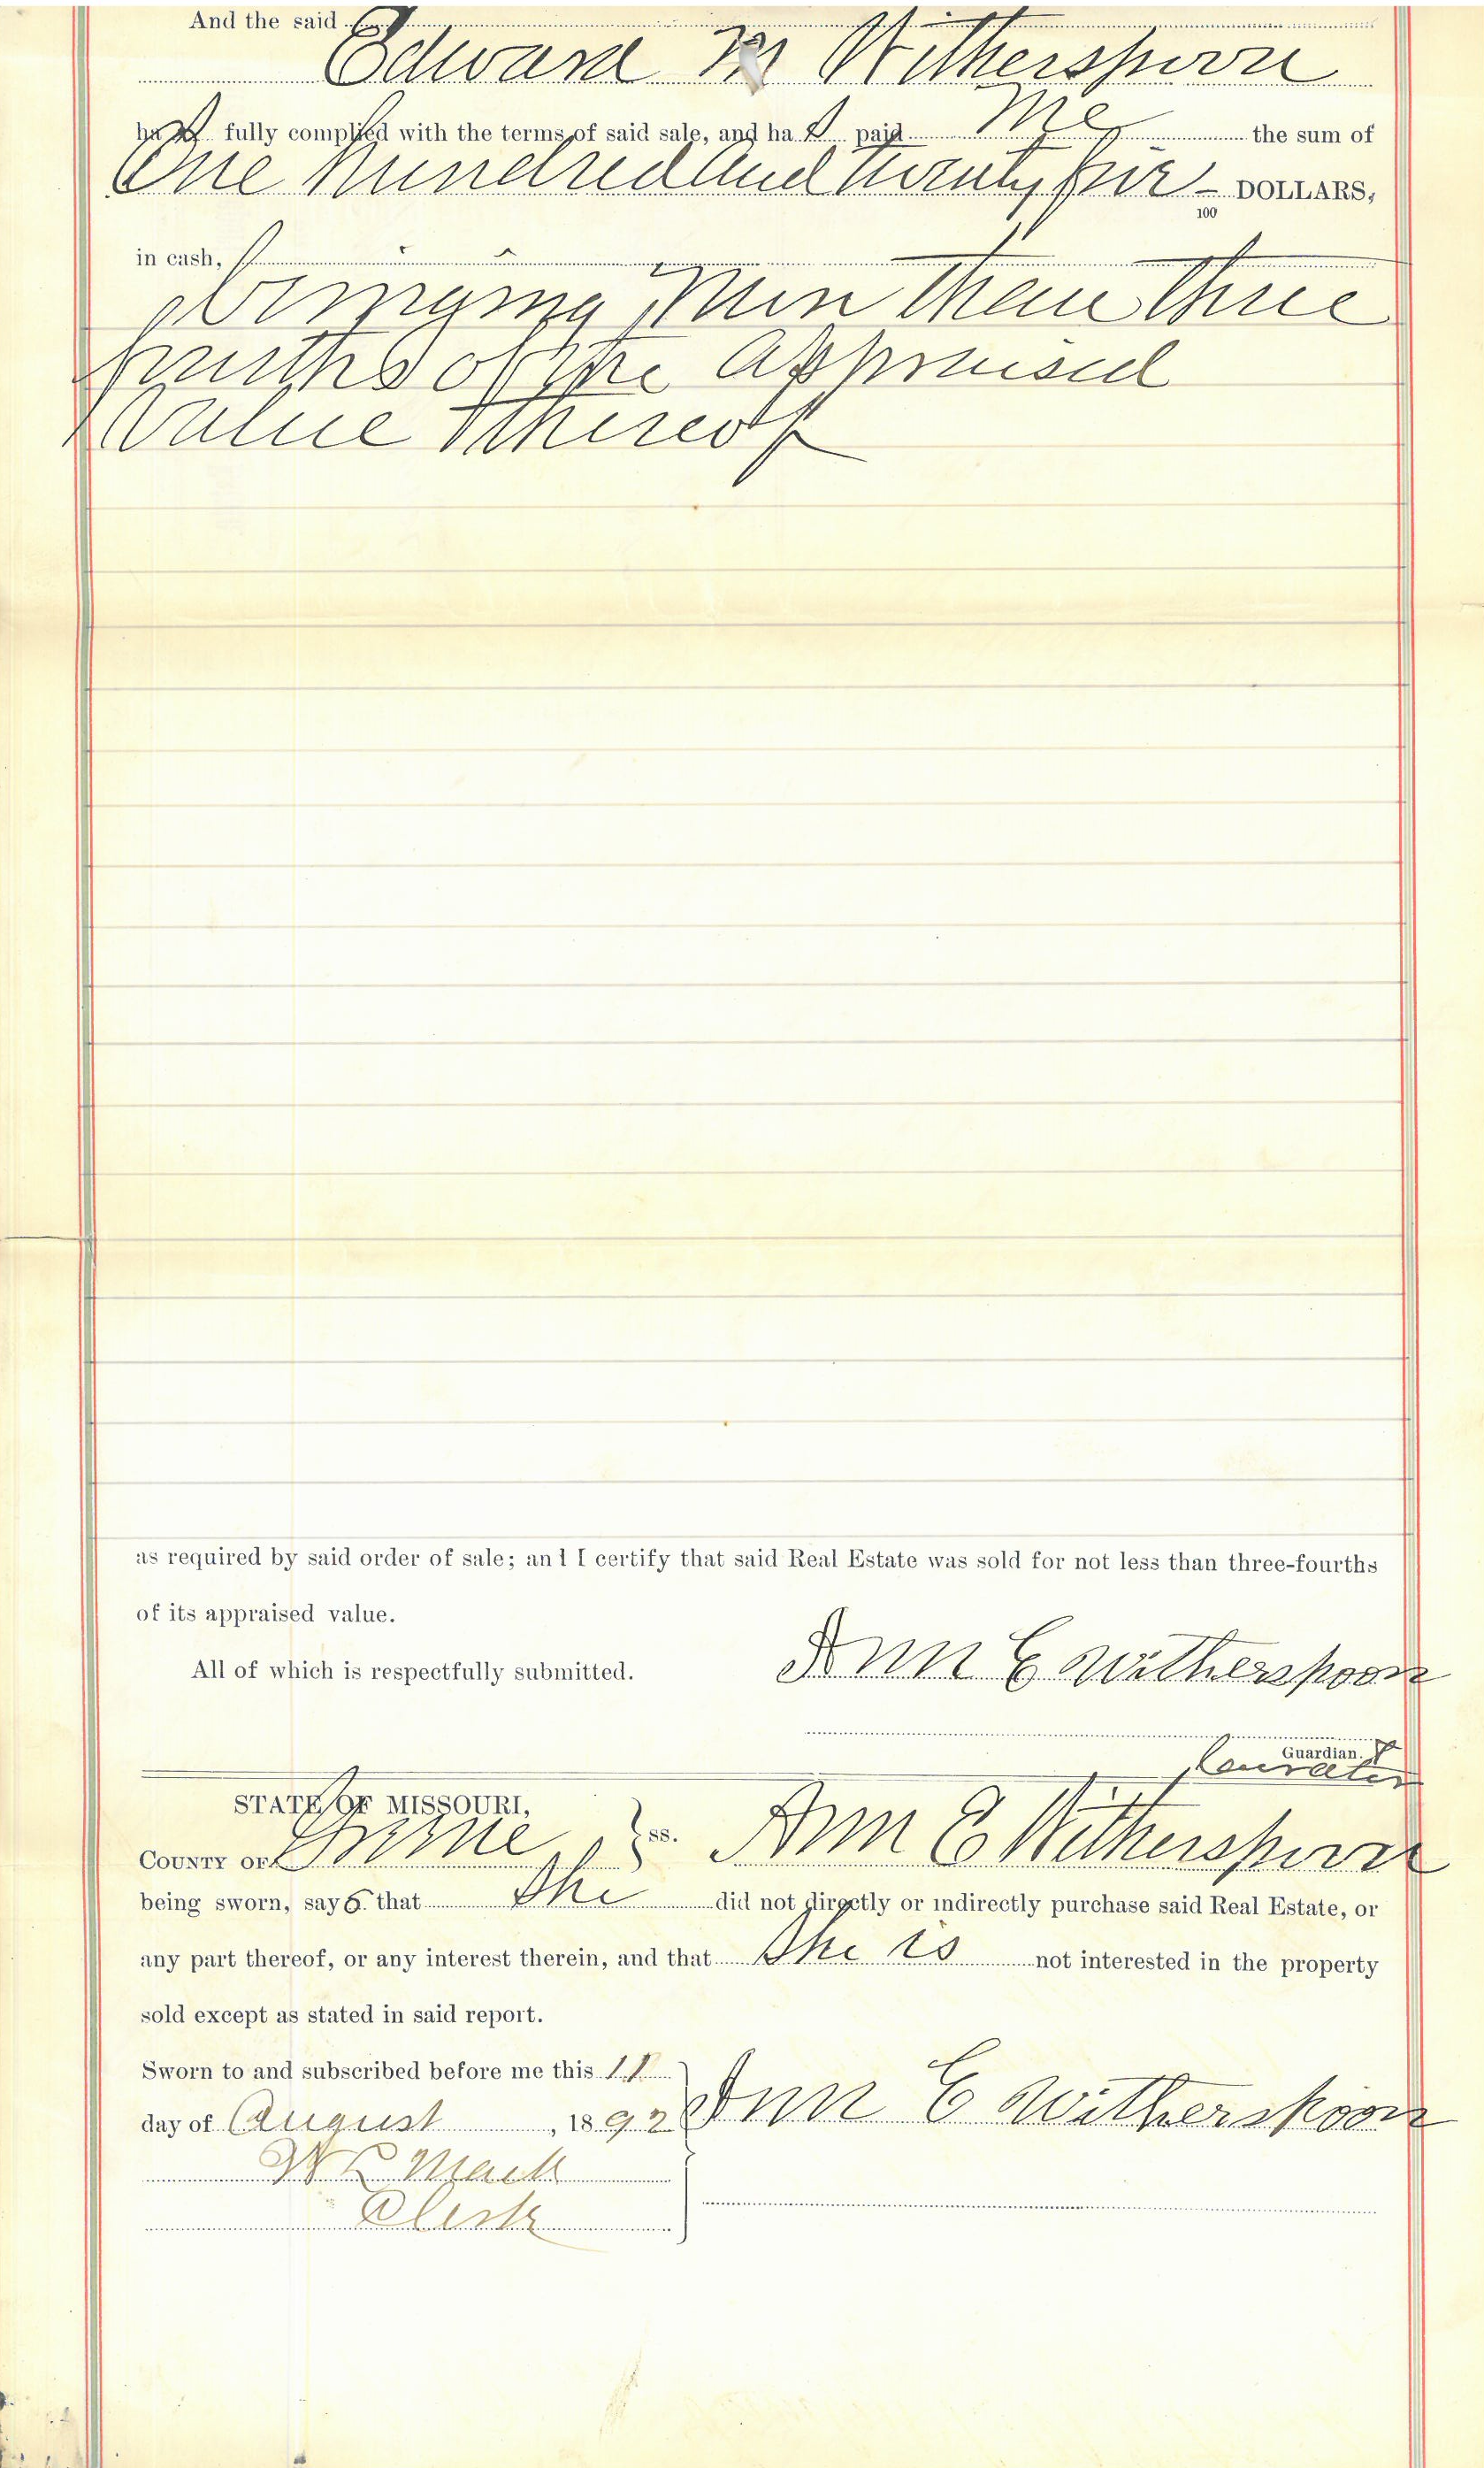 And the said
Edward M Witherspoon
has fully complied with the terms of said sale, and has paid me the sum of
One hundred and twenty five - DOLLARS,
100
in cash,
bringing more than three
fourths of the appraised
value thereof
as required by said order of sale; and I certify that said Real Estate was sold for not less than three-fourths
of its appraised value.
All of which is respectfully submitted.
Ann E Witherspoon
Guardian. &
Curator
STATE OF MISSOURI,
COUNTY OF Greene ss. Ann E Witherspoon
being sworn, says that She did not directly or indirectly purchase said Real Estate, or
any part thereof, or any interest therein, and that She is not interested in the property
sold except as stated in said report.
Sworn to and subscribed before me this
day of August, 1892 Ann E Witherspoon
Clerk